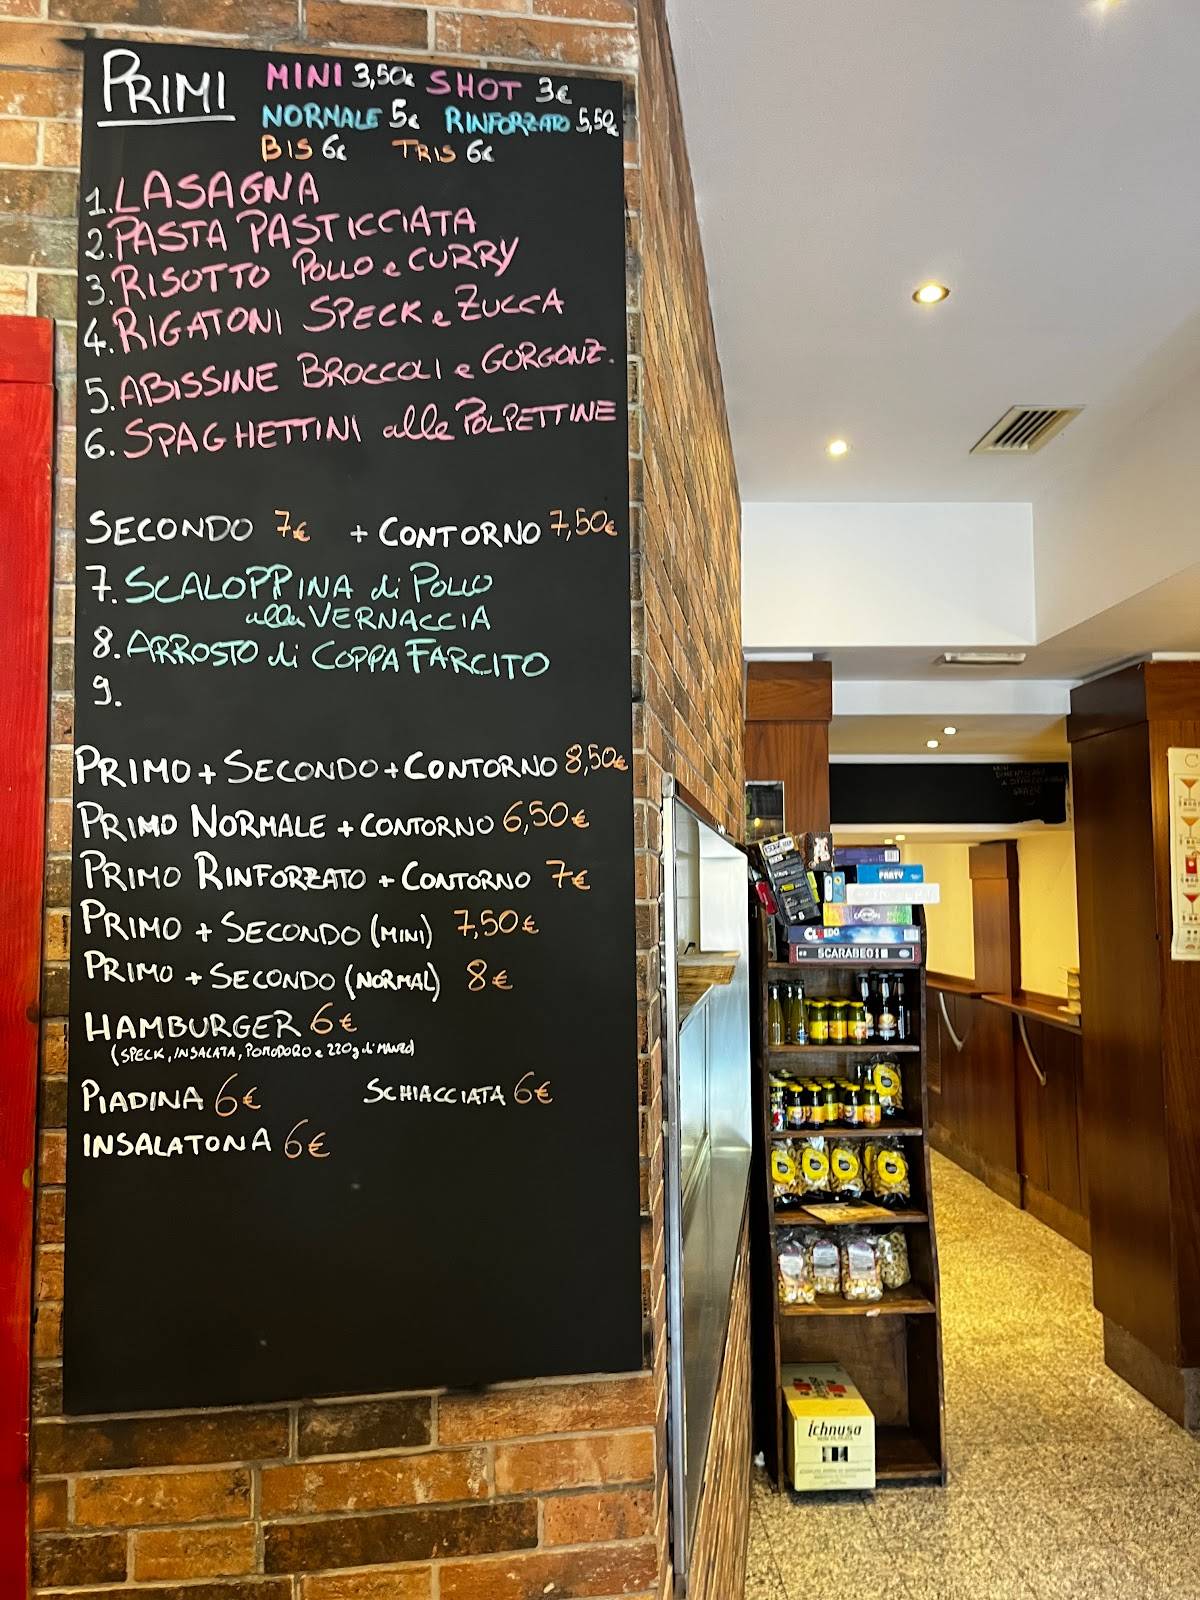 PRIMI MINI 3,50€ SHOT 3€
NORMALE 5€ RINFORZATO 5,50€
BIS 6€ TRIS 6€
1. LASAGNA
2. PASTA PASTICCIATA
3. RISOTTO POLLO e CURRY
4. RIGATONI SPECK e ZUCCA
5. ABISSINE BROCCOLI e GORGONZ.
6. SPAGHETTINI alle POLPETTINE
SECONDO 7€ + CONTORNO 7,50€
7. SCALOPPINA di POLLO
alla VERNACCIA
8. ARROSTO di COPPA FARCITO
9.
PRIMO + SECONDO + CONTORNO 8,50€
PRIMO NORMALE + CONTORNO 6,50€
PRIMO RINFORZATO + CONTORNO 7€
PRIMO + SECONDO (MINI) 7,50€
PRIMO + SECONDO (NORMAL) 8€
HAMBURGER 6€
(SPECK, INSALATA, POMODORO e 220g di MANZO)
PIADINA 6€ SCHIACCIATA 6€
INSALATONA 6€
PARTY
CLUEDO
SCARABEO
ichnusa